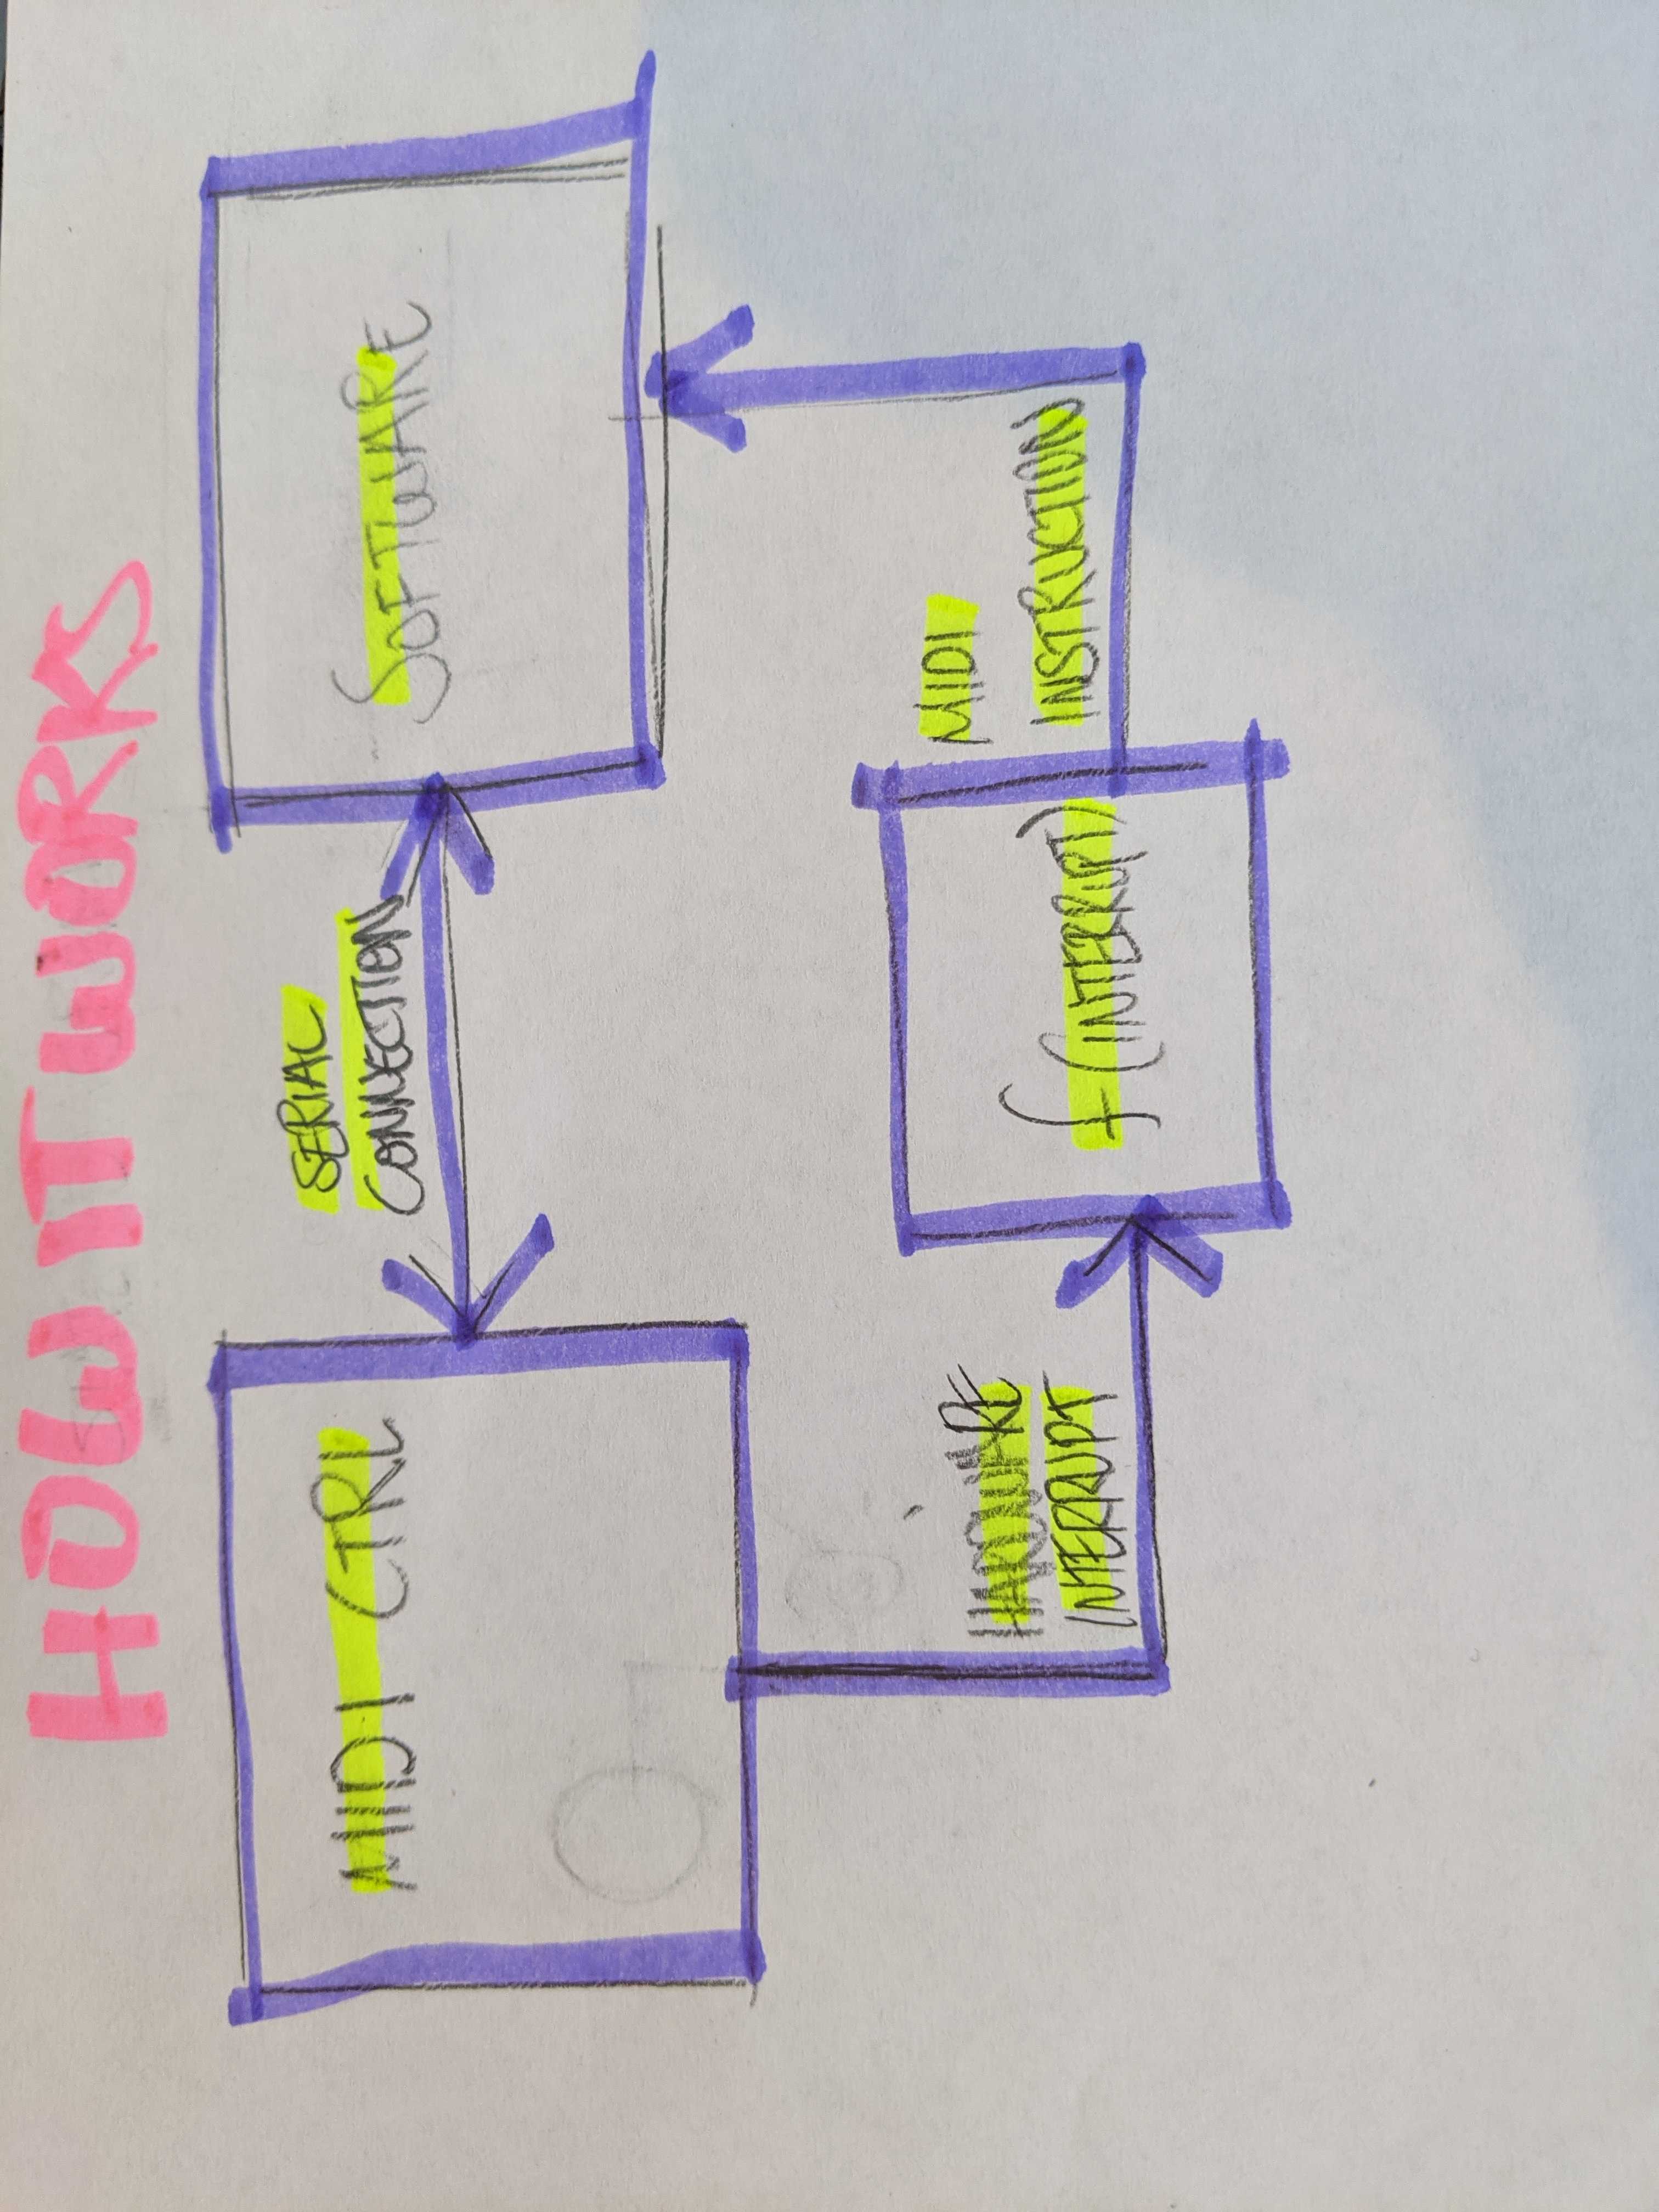 HOW IT WORKS
MIDI CTRL
SERIAL
CONNECTION
SOFTWARE
HARDWARE
INTERRUPT
f(INTERRUPT)
MIDI
INSTRUCTION